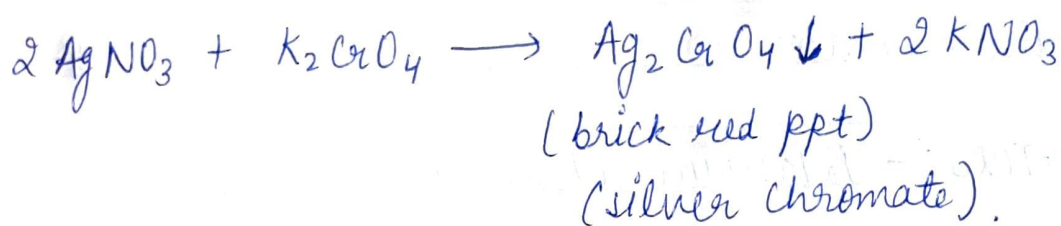 2 AgNO₃ + K₂CrO₄ ⟶ Ag₂CrO₄ ↓ + 2 KNO₃
(brick red ppt)
(silver chromate).